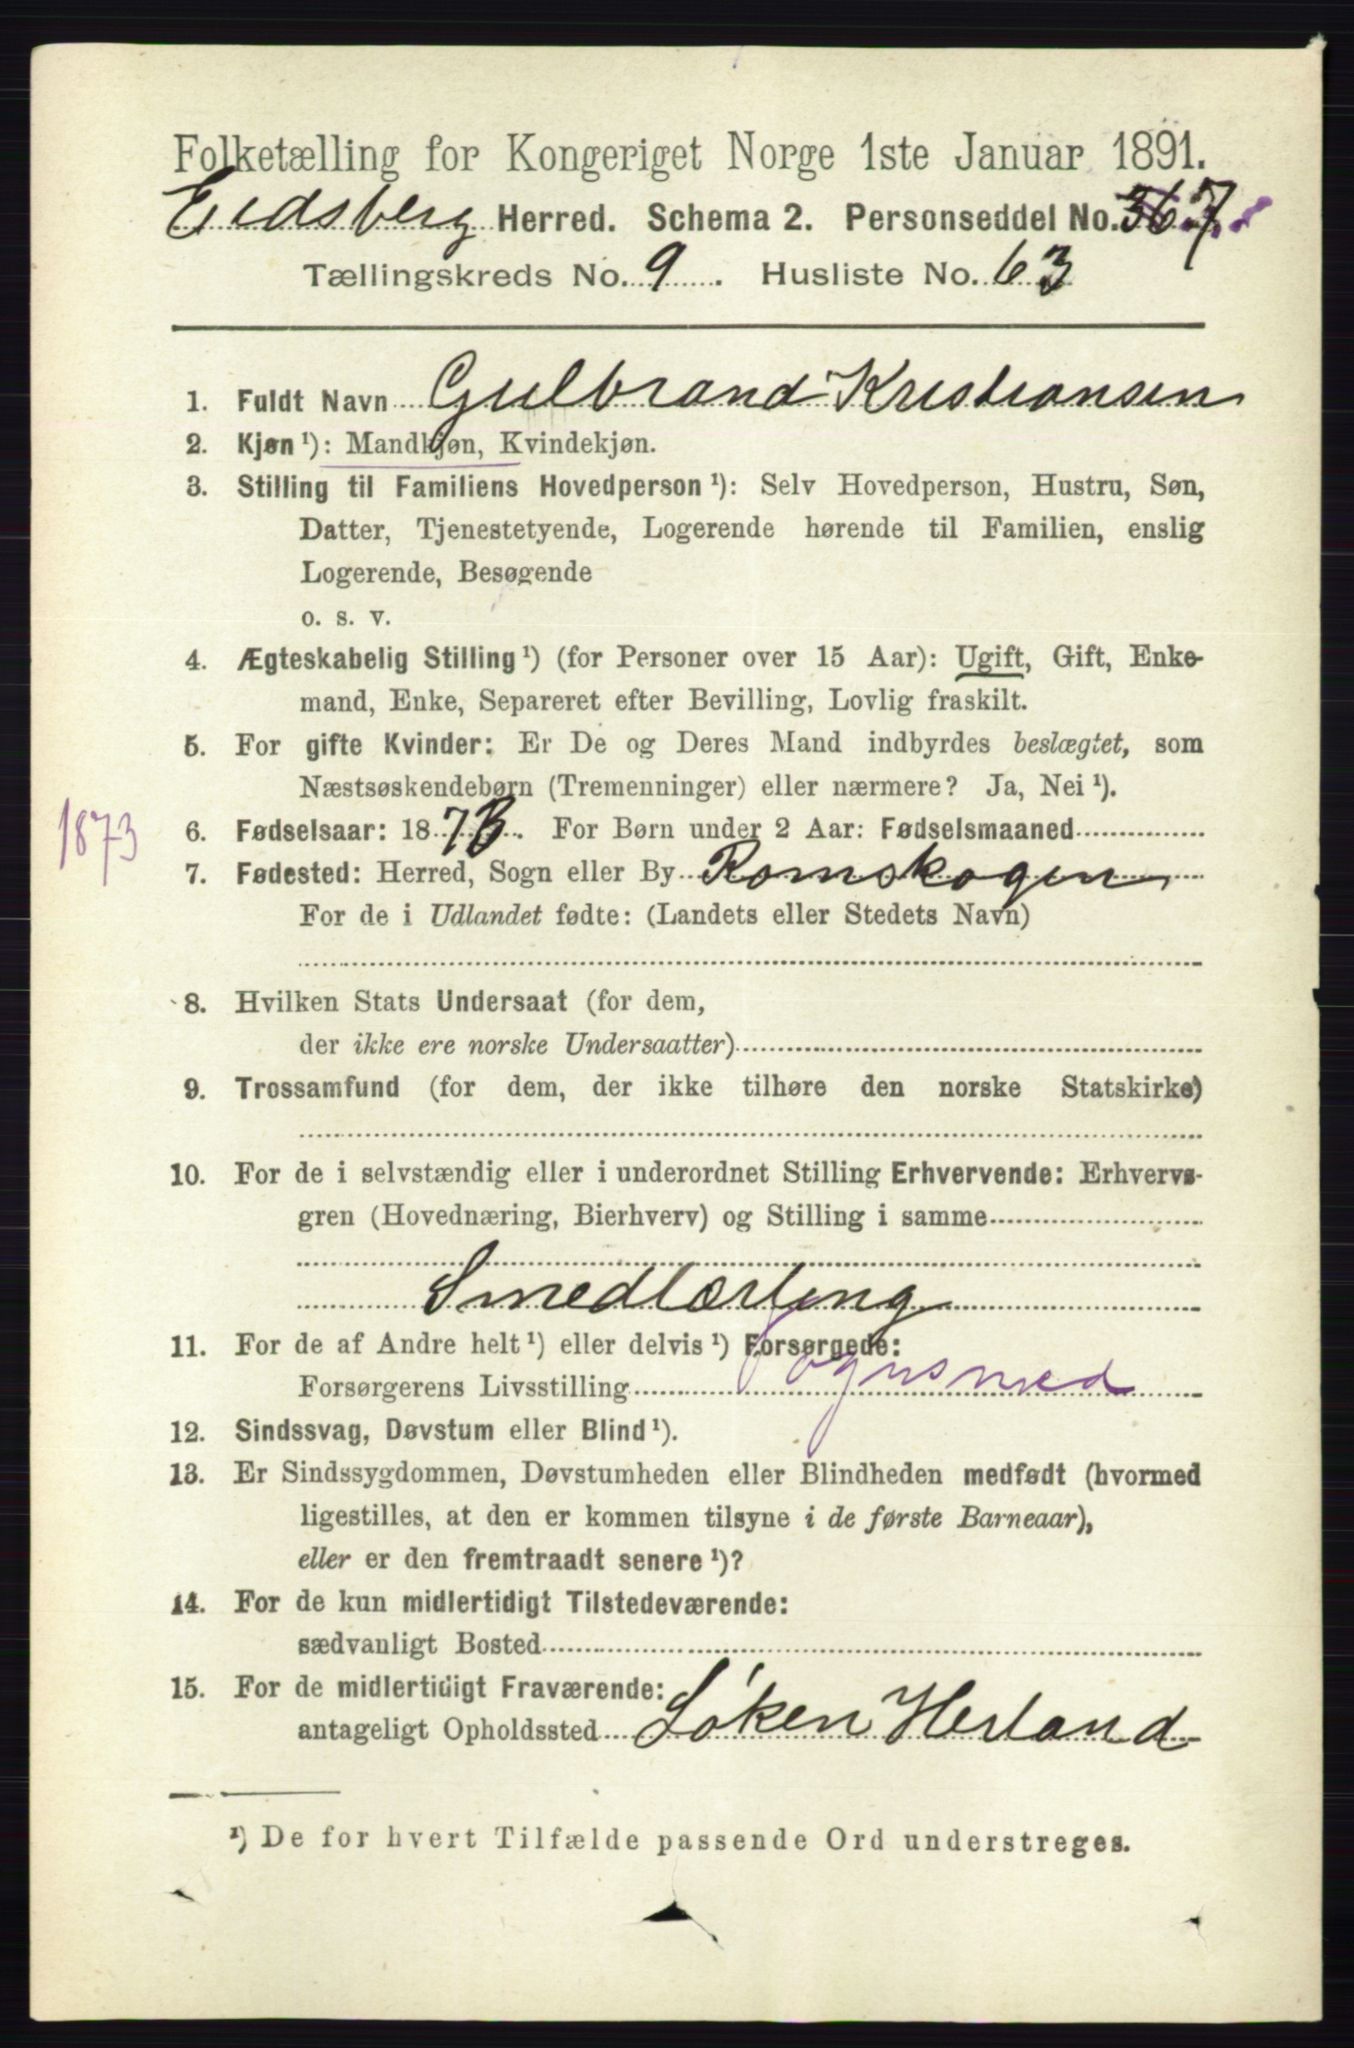 Folketælling for Kongeriget Norge 1ste Januar 1891.
Eidsberg Herred. Schema 2. Personseddel No. 367
Tællingskreds No. 9. Husliste No. 63
1. Fuldt Navn Gulbrand Kristiansen
2. Kjøn ¹): Mandkjøn, Kvindekjøn.
3. Stilling til Familiens Hovedperson ¹): Selv Hovedperson, Hustru, Søn,
Datter, Tjenestetyende, Logerende hørende til Familien, enslig
Logerende, Besøgende
o. s. v.
4. Ægteskabelig Stilling ¹) (for Personer over 15 Aar): Ugift, Gift, Enke-
mand, Enke, Separeret efter Bevilling, Lovlig fraskilt.
5. For gifte Kvinder: Er De og Deres Mand indbyrdes beslægtet, som
Næstsøskendebørn (Tremenninger) eller nærmere? Ja, Nei ¹).
1873
6. Fødselsaar: 1873. For Børn under 2 Aar: Fødselsmaaned
7. Fødested: Herred, Sogn eller By Romskogen
For de i Udlandet fødte: (Landets eller Stedets Navn)
8. Hvilken Stats Undersaat (for dem,
der ikke ere norske Undersaatter)
9. Trossamfund (for dem, der ikke tilhøre den norske Statskirke)
10. For de i selvstændig eller i underordnet Stilling Erhvervende: Erhvervs-
gren (Hovednæring, Bierhverv) og Stilling i samme
Smedlærling
11. For de af Andre helt ¹) eller delvis ¹) Forsørgede:
Forsørgerens Livsstilling Vognsmed
12. Sindssvag, Døvstum eller Blind ¹).
13. Er Sindssygdommen, Døvstumheden eller Blindheden medfødt (hvormed
ligestilles, at den er kommen tilsyne i de første Barneaar),
eller er den fremtraadt senere ¹)?
14. For de kun midlertidigt Tilstedeværende:
sædvanligt Bosted
15. For de midlertidigt Fraværende:
antageligt Opholdssted Løken Herland
¹) De for hvert Tilfælde passende Ord understreges.